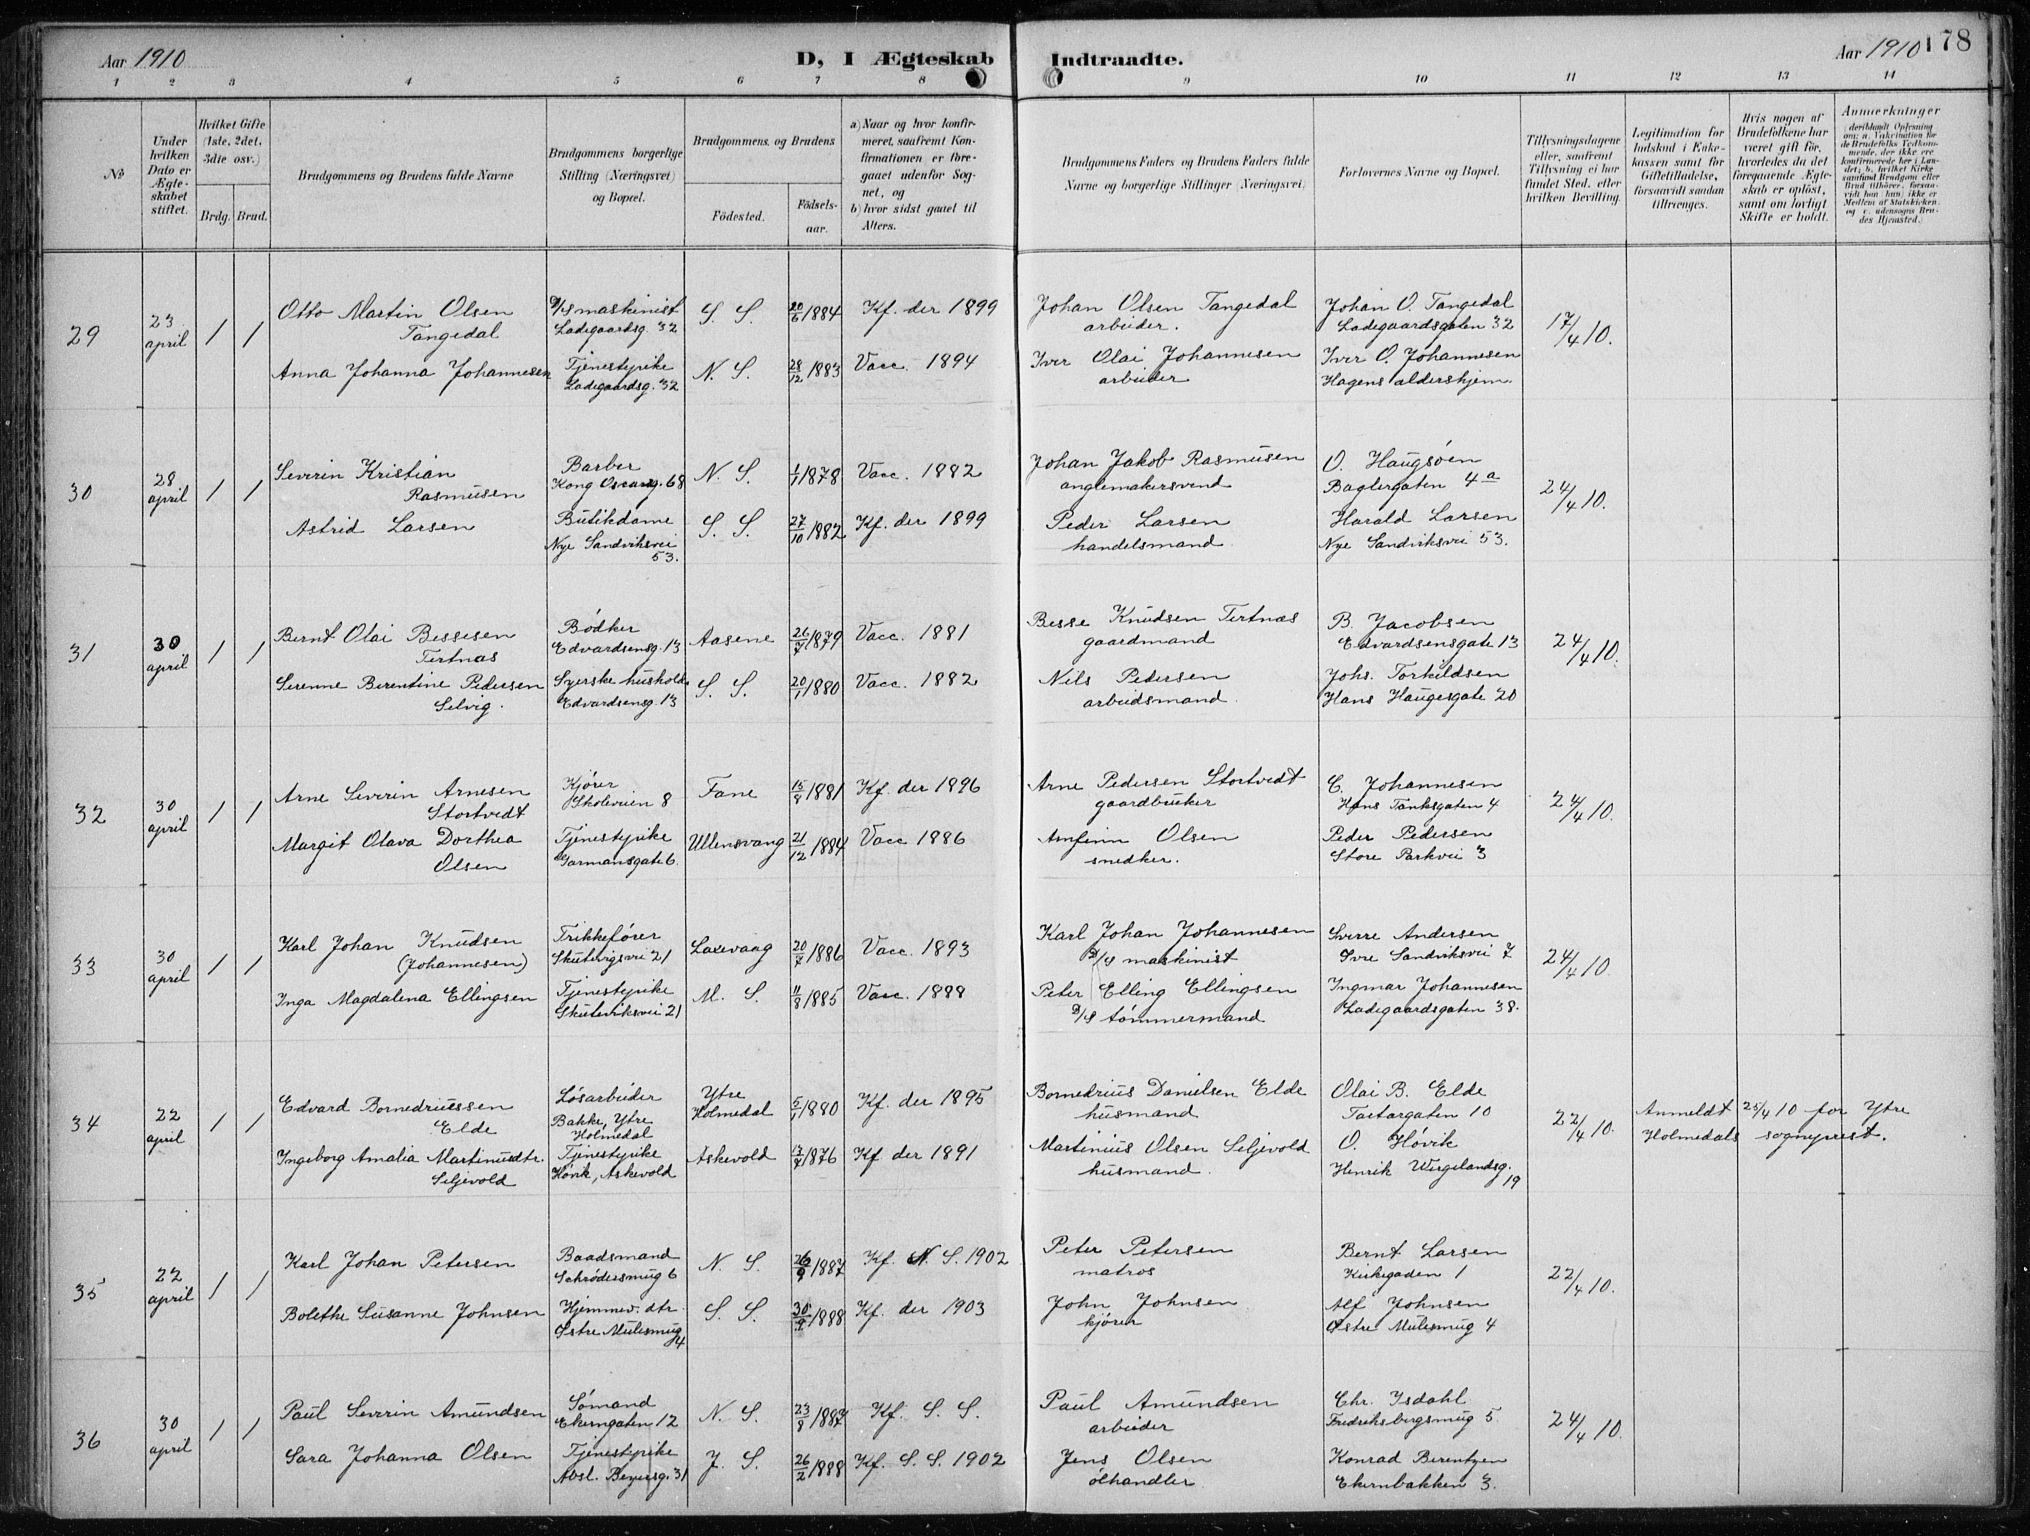 Aar 1910
D, I Ægteskab Indtraadte.
Aar 1910
178
1 2 3 4 5 6 7 8 9 10 11 12 13 14
№
Under hvilken Dato er Ægteskabet stiftet.
Hvilket Gifte (1ste, 2det, 3die osv.)
Brdg. Brud.
Brudgommens og Brudens fulde Navne
Brudgommens borgerlige Stilling (Næringsvei) og Bopæl.
Brudgommens og Brudens
Fødested.
Fødselsaar.
a) Naar og hvor konfirmeret, saafremt Konfirmationen er foregaaet udenfor Sognet, og
b) hvor sidst gaaet til Alters.
Brudgommens Faders og Brudens Faders fulde Navne og borgerlige Stillinger (Næringsvei.
Forlovernes Navne og Bopæl.
Tillysningsdagene eller, saafremt Tillysning ei har fundet Sted, efter hvilken Bevilling.
Legitimation for Indskud i Enkekassen samt for Giftetilladelse, forsaavidt saadan tiltrænges.
Hvis nogen af Brudefolkene har været gift før, hvorledes da det foregaaende Ægteskab er opløst, samt om lovligt Skifte er holdt.
Anmærkninger
29
23 april
1 1
Otto Martin Olsen
Tangedal
D/S maskinist
Ladegaardsg. 32
S. S.
20/6 1884
Kf. der 1899
Johan Olsen Tangedal
arbeider.
Johan O. Tangedal
Ladegaardsgaten 32
17/4 10.
Anna Johanna Johannesen
Tjenestepike
Ladegaardsg. 32
N. S.
28/12 1883
Vacc. 1894
Iver Olai Johannesen
arbeider
Iver O. Johannesen
Hagens aldershjem.
30
28 april
1 1
Severin Kristian
Rasmusen
Barber
Kong Oscarsg. 68
N. S.
1/1 1878
Vacc. 1882
Johan Jakob Rasmusen
anglemakersvend
O. Haugsøen
Baglergaten 4a
24/4 10.
Astrid Larsen
Butikdame
Nye Sandviksvei
53.
S. S.
27/10 1882
Kf. der 1899
Peder Larsen
handelsmand
Harald Larsen
Nye Sandviksvei 53.
31
30 april
1 1
Bernt Olai Bessesen
Tertnæs
Bødker
Edvardsensg. 13
Aasene
26/7 1879
Vacc. 1881
Besse Knudsen Tertnæs
gaardmand
B. Jacobsen
Edvardsensgate 13
24/4 10.
Serenne Berentine Pedersen
Selvig.
Syerske hushold.
Edvardsensg. 13
S. S.
20/1 1880
Vacc. 1882
Nils Pedersen
arbeidsmand.
Johs. Torkildsen
Hans Haugesgate 20
32
30 april
1 1
Arne Severin Arnesen
Stortvedt
Kjører
Skoleveien 8
Fane
15/8 1881
Kf. der 1896
Arne Pedersen Stortvedt
gaardbruker
C. Johannesen
Hans Tanksgaten 4
24/4 10.
Margit Olava Dorthea
Olsen
Tjenestepike
Garmansgate 6.
Ullensvang
21/12 1884
Vacc 1886
Amfinn Olsen
snedker.
Peder Pedersen
Store Parkvei 3
33
30 april
1 1
Karl Johan Knudsen
(Johannesen)
Trikkefører
Skutevigsvei 21
Laxevaag
20/7 1886
Vacc. 1893
Karl Johan Johannesen
D/S maskinist
Sverre Andersen
Øvre Sandviksvei 7
24/4 10.
Inga Magdalena Ellingsen
Tjenestepike
Skuteviksvei 21
M. S.
11/8 1885
Vacc. 1888
Peter Elling Ellingsen
D/S tømmermand
Ingmar Johannesen
Ladegaardsgaten 38.
34
22 april
1 1
Edvard Bornedriussen
Elde
Løsarbeider
Bakke, Ytre
Holmedal
Ytre
Holmedal
5/1 1880
Kf. der 1895
Bornedrius Danielsen Elde
husmand
Olai B. Elde
Tartargaten 10
22/4 10.
Anmeldt 25/4 10 for Ytre
Holmedals sogneprest.
Ingeborg Amalia Martinusdtr.
Seljevold
Tjenestepike
Høvik, Askevold
Askevold
1876
Kf der 1891
Martinius Olsen Seljevold
husmand.
O. Høvik
Henrik Wergelandsg.
19
35
22 april
1 1
Karl Johan Petersen
Baadsmand
Schrødersmug 6
N. S.
26/9 1887
Kf. N. S. 1902
Peter Petersen
matros
Bernt Larsen
Kirkegaden 1
22/4 10.
Bolethe Susanne Johnsen
Hjemmev. dtr.
Østre Mulesmug
4
S. S.
1888
Kf. der 1903
John Johnsen
kjører
Alf Johnsen
Østre Mulesmug 4
36
30 april
1 1
Paul Severin Amundsen
Sømand
Ekerngaten 12
N. S.
23/8 1887
Kf. S. S.
Paul Amundsen
arbeider
Chr. Isdahl
Fredriksbergsmug 5.
24/4 10.
Sara Johanna Olsen
Tjenestepike
Absl. Beyersg. 31
J. S.
26/2 1888
Kf. S. S. 1902
Jens Olsen
ølhandler
Konrad Berentzen
Ekernbakken 3.